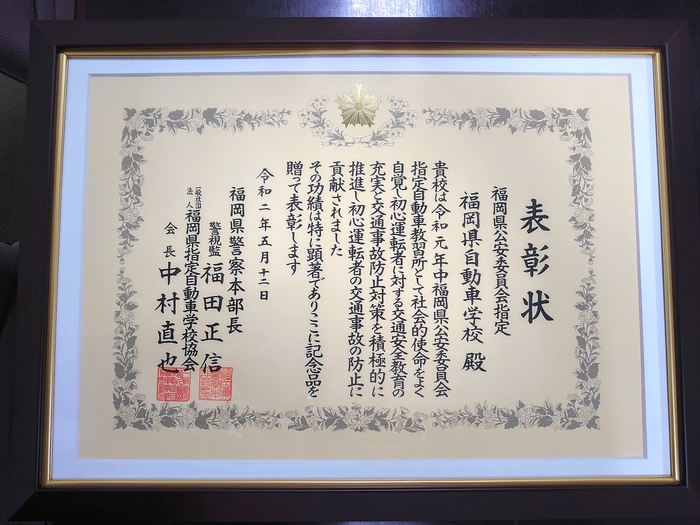 表彰状
福岡県公安委員会指定
福岡県自動車学校 殿
貴校は令和元年中福岡県公安委員会
指定自動車教習所として社会的使命をよく
自覚し初心運転者に対する交通安全教育の
充実と交通事故防止対策を積極的に
推進し初心運転者の交通事故の防止に
貢献されました
その功績は特に顕著でありここに記念品を
贈って表彰します
令和二年五月十二日
福岡県警察本部長
警視監 福田正信
一般社団法人 福岡県指定自動車学校協会
会長 中村直也